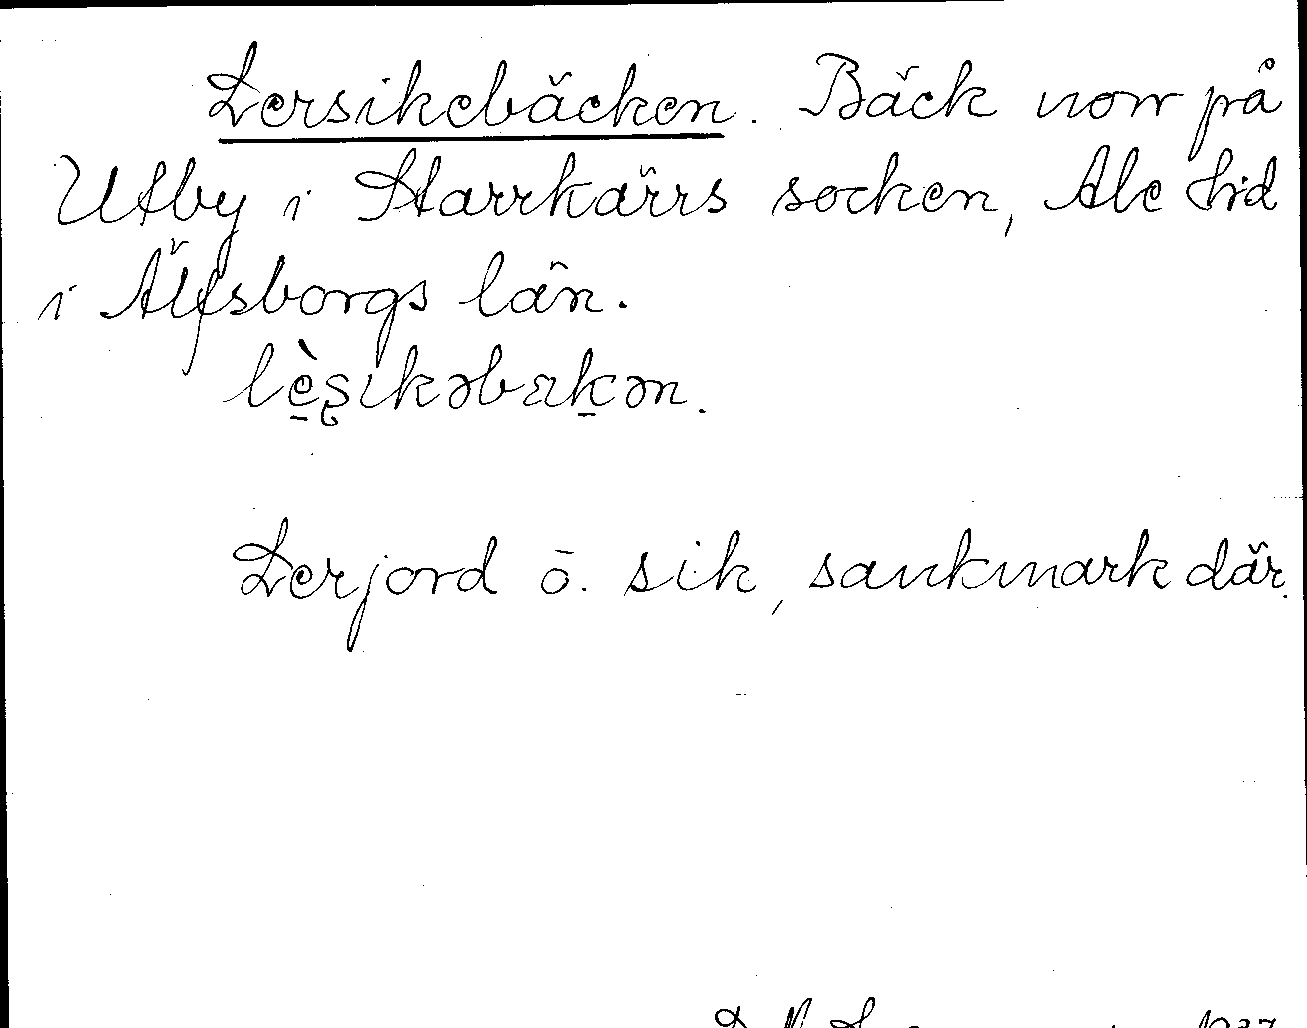 Lersikebäcken. Bäck norr på
Utby i Starrkärrs socken, Ale hd
i Älfsborgs län.
lè̠s̨ikəbæk̠ən.
Lerjord o. sik, sankmark där.